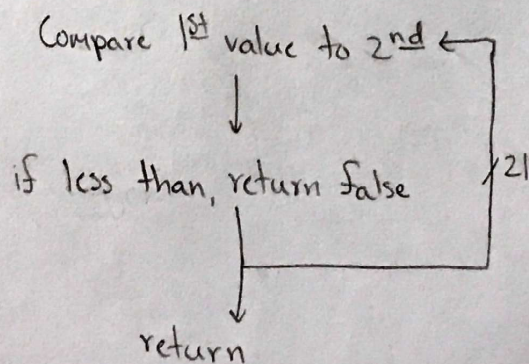 Compare 1st value to 2nd
if less than, return false
21
return